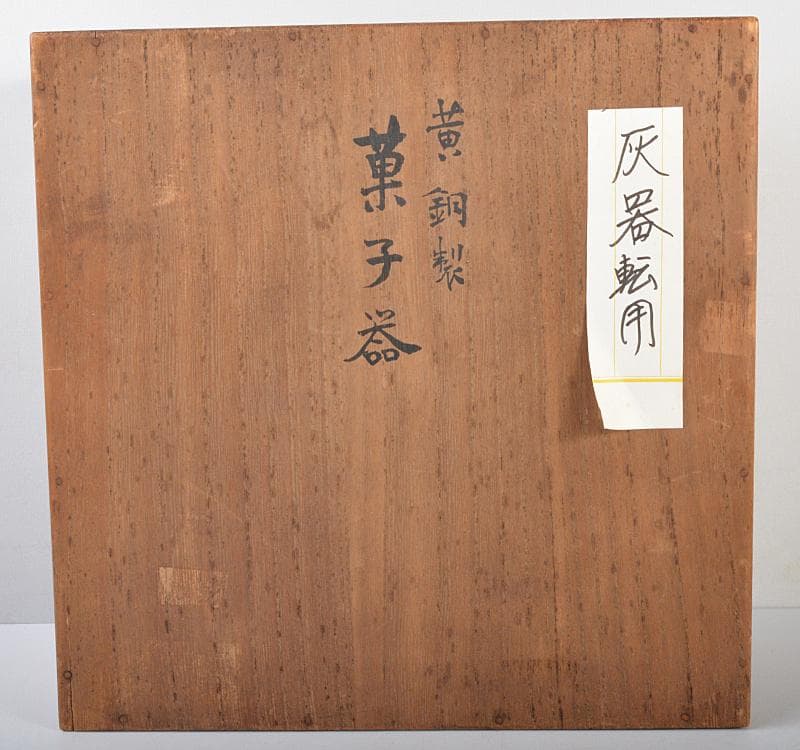 灰器転用
黄銅製
菓子器